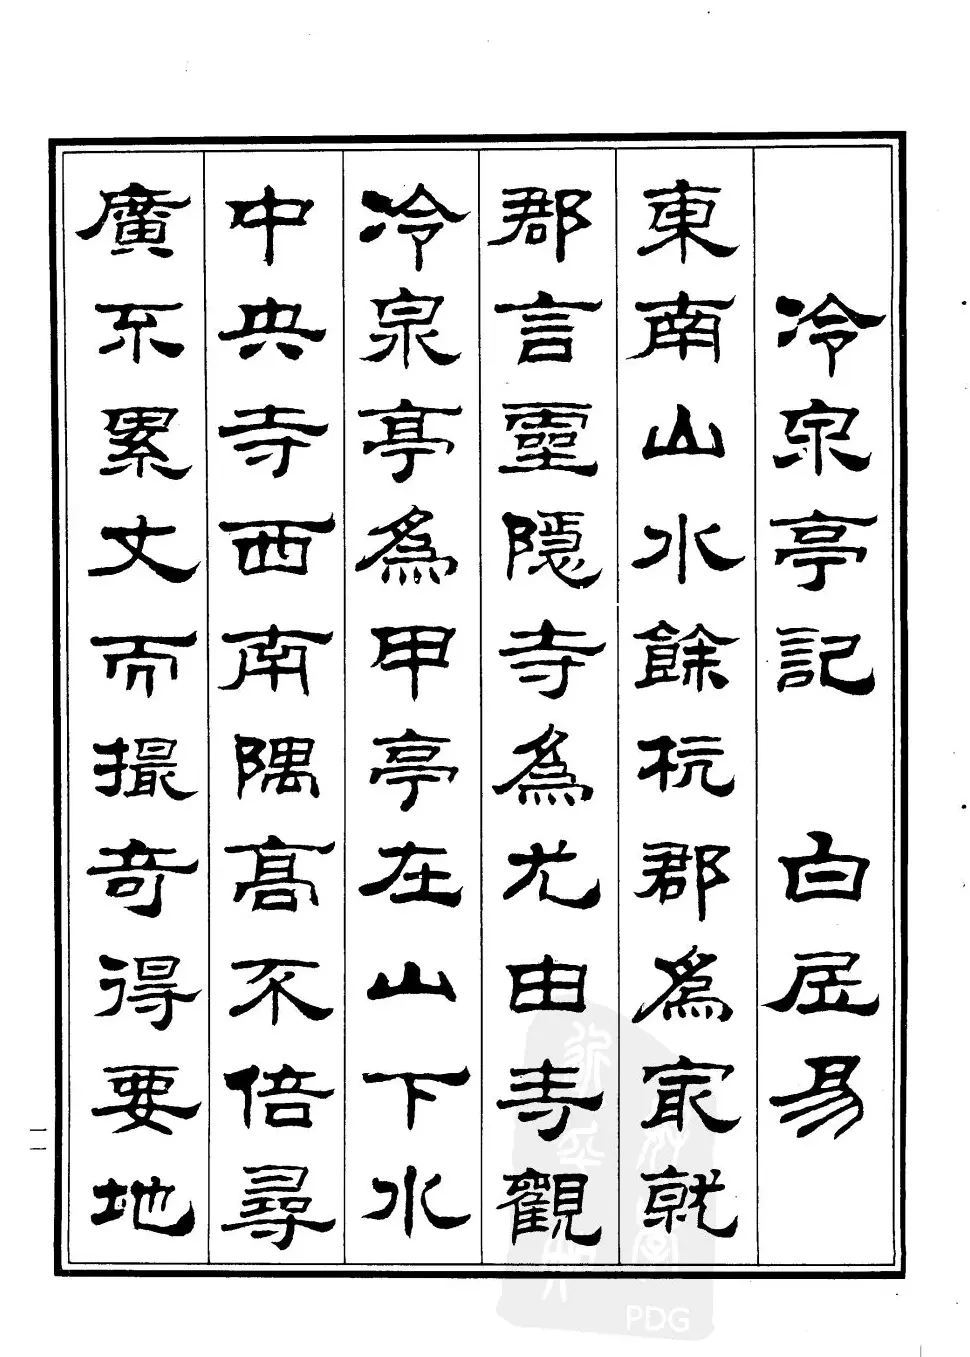 冷泉亭記　白居易
東南山水餘杭郡為最就
郡言靈隱寺為尤由寺觀
冷泉亭為甲亭在山下水
中央寺西南隅高不倍尋
廣不累丈而撮奇得要地
二
PDG